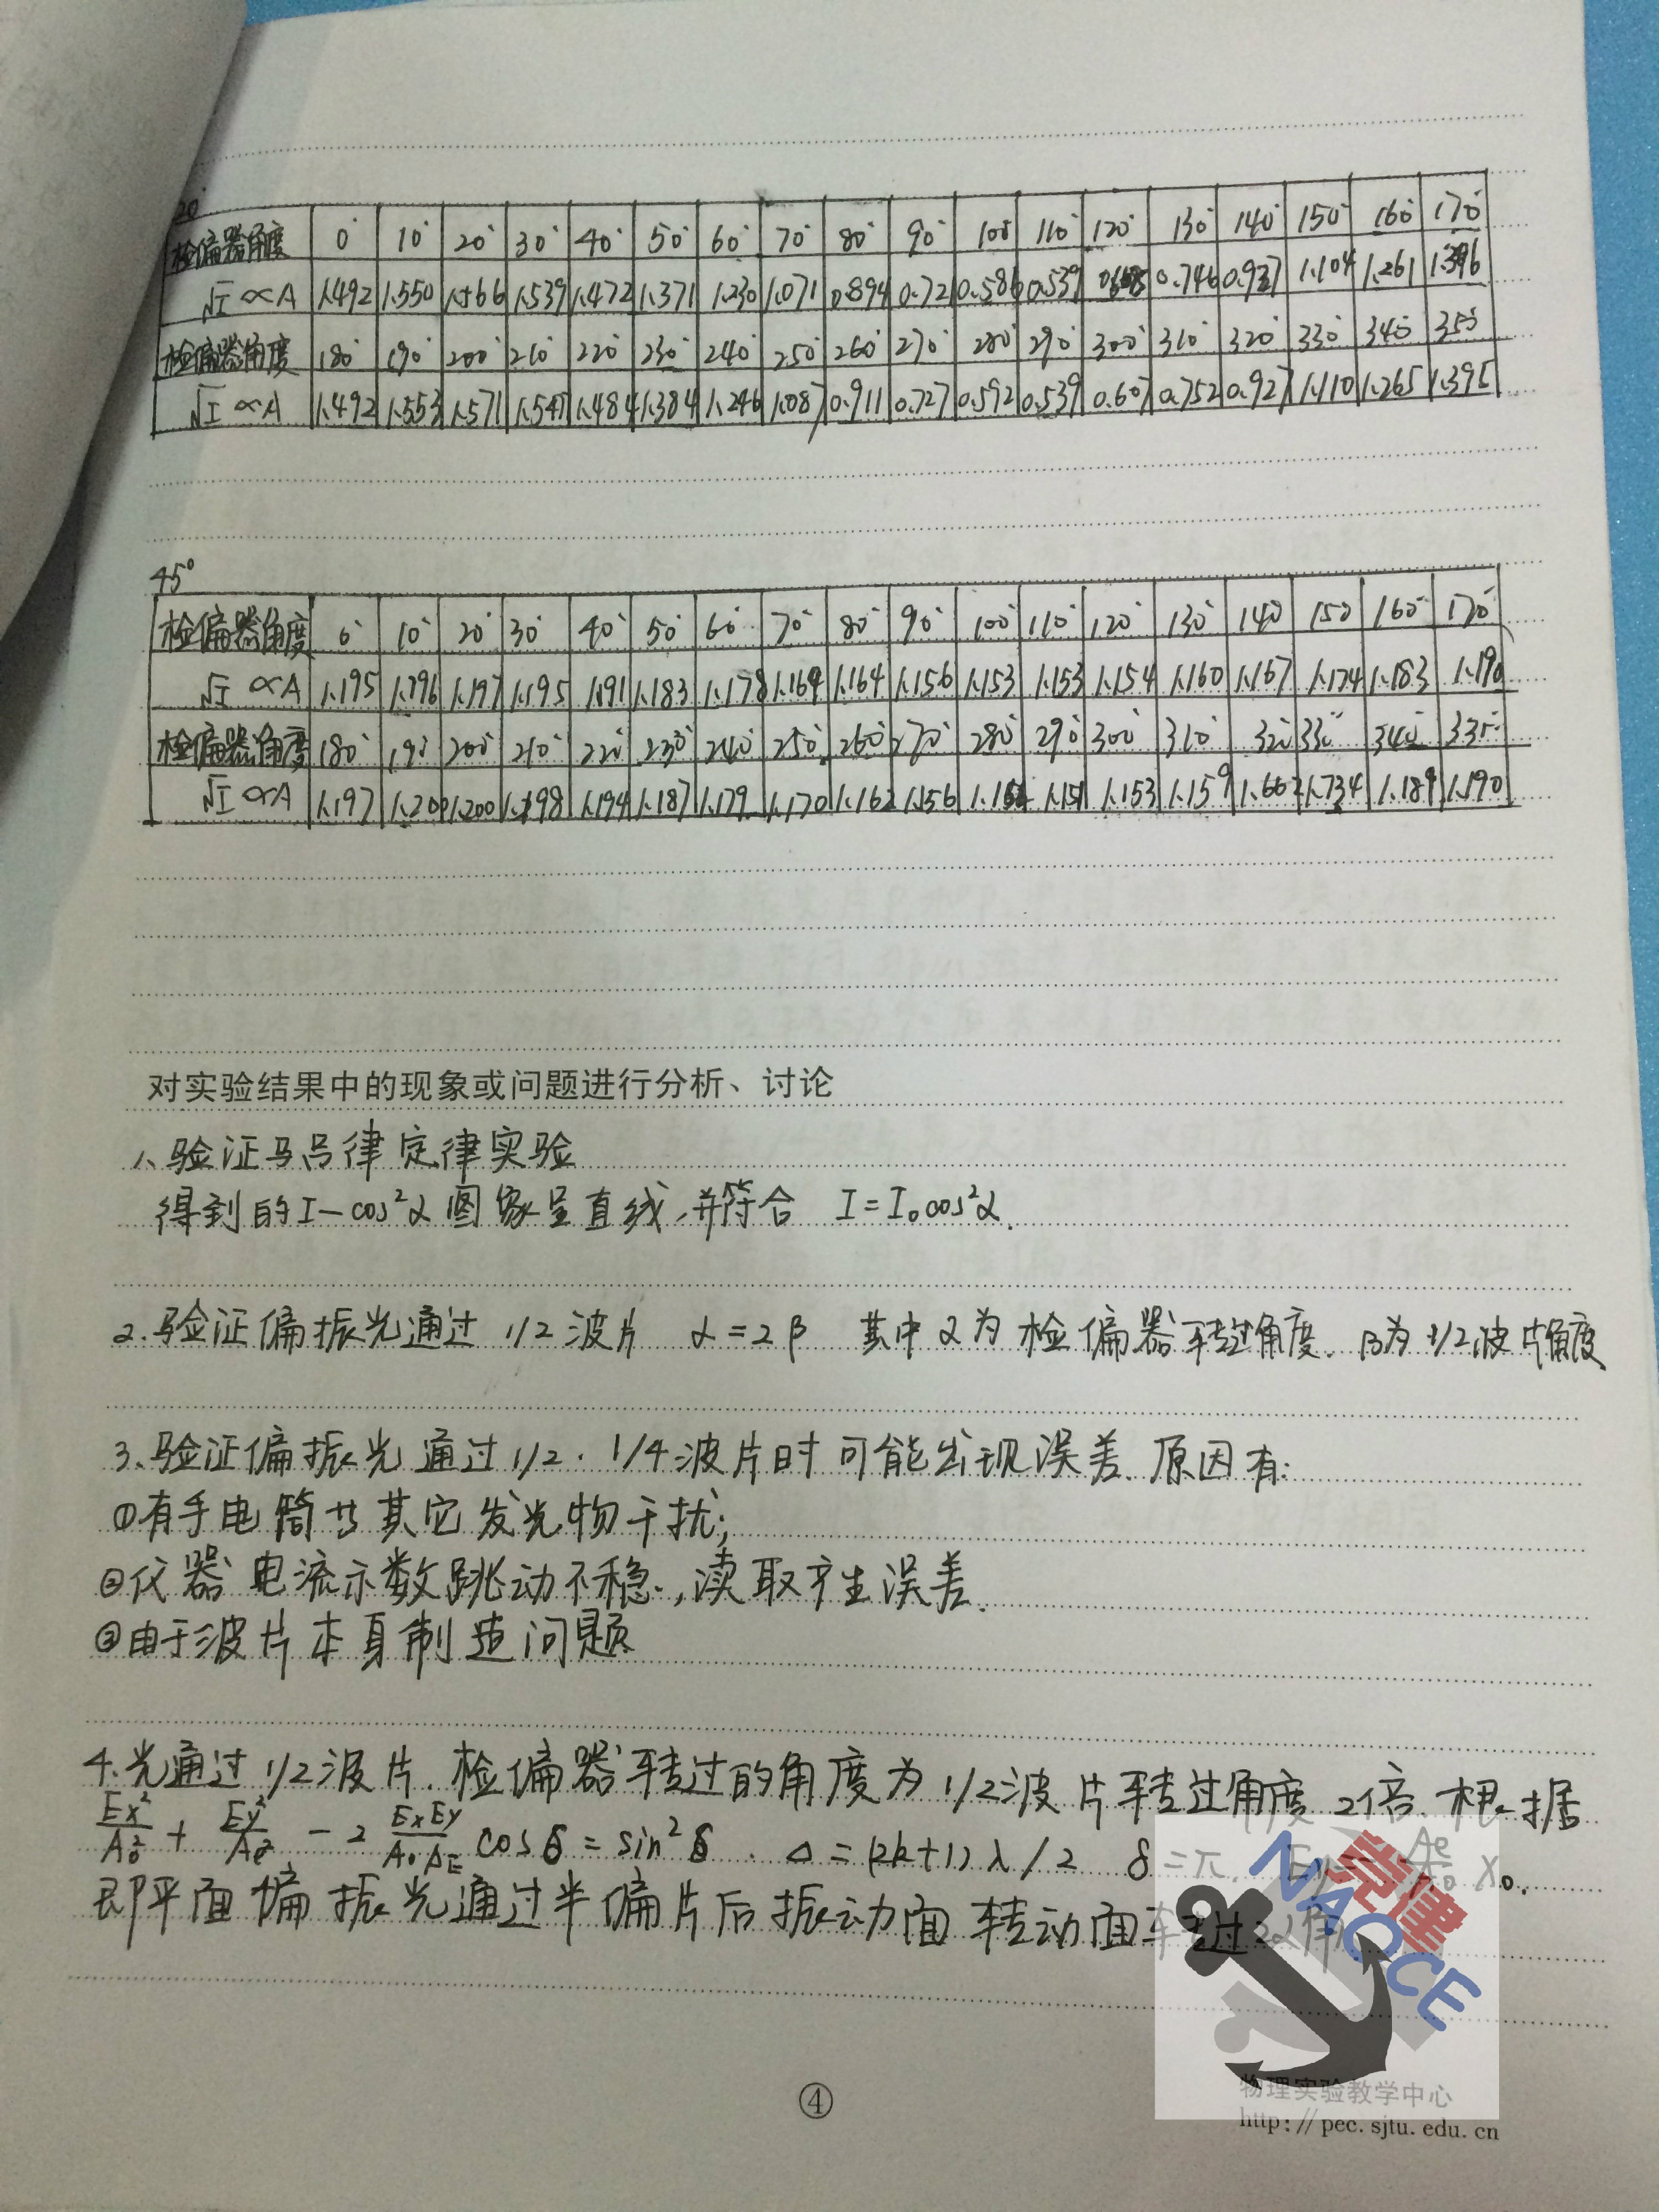 20°
检偏器角度 0° 10° 20° 30° 40° 50° 60° 70° 80° 90° 100° 110° 120° 130° 140° 150° 160° 170°
√I ∝A 1.492 1.550 1.566 1.539 1.472 1.371 1.230 1.071 0.894 0.721 0.586 0.539 0.746 0.937 1.104 1.261 1.396
检偏器角度 180° 190° 200° 210° 220° 230° 240° 250° 260° 270° 280° 290° 300° 310° 320° 330° 340° 350°
√I ∝A 1.492 1.553 1.571 1.547 1.484 1.384 1.246 1.087 0.911 0.727 0.592 0.539 0.607 0.752 0.927 1.110 1.265 1.395
45°
检偏器角度 0° 10° 20° 30° 40° 50° 60° 70° 80° 90° 100° 110° 120° 130° 140 150 160° 170°
√I ∝A 1.195 1.196 1.197 1.195 1.191 1.183 1.178 1.169 1.164 1.156 1.153 1.153 1.154 1.160 1.167 1.174 1.183 1.190
检偏器角度 180° 190° 200° 210° 220° 230° 240° 250° 260° 270° 280° 290° 300° 310° 320 330° 340° 335°
√I ∝A 1.197 1.200 1.200 1.198 1.194 1.187 1.179 1.170 1.162 1.156 1.151 1.153 1.159 1.662 1.734 1.189 1.190
对实验结果中的现象或问题进行分析、讨论
1、验证马吕律定律实验
得到的I—cos²α 图象呈直线,并符合 I=I₀cos²α.
2.验证偏振光通过 1/2 波片 α=2β 其中α为检偏器转过角度. β为1/2波片角度
3.验证偏振光通过1/2. 1/4波片时可能出现误差. 原因有:
①有手电筒与其它发光物干扰;
②仪器电流示数跳动不稳.,读取产生误差.
③由于波片本身制造问题
4.光通过1/2波片.检偏器转过的角度为1/2波片转过角度2倍.根据
Ex²/A₀² + Ey²/Ae² − 2 ExEy/A₀AE cosδ=sin²δ. Δ=(2k+1)λ/2 δ=π.
即平面偏振光通过半偏片后振动面转动面转过2α角
党建
NAOCE
④
物理实验教学中心
http://pec.sjtu.edu.cn